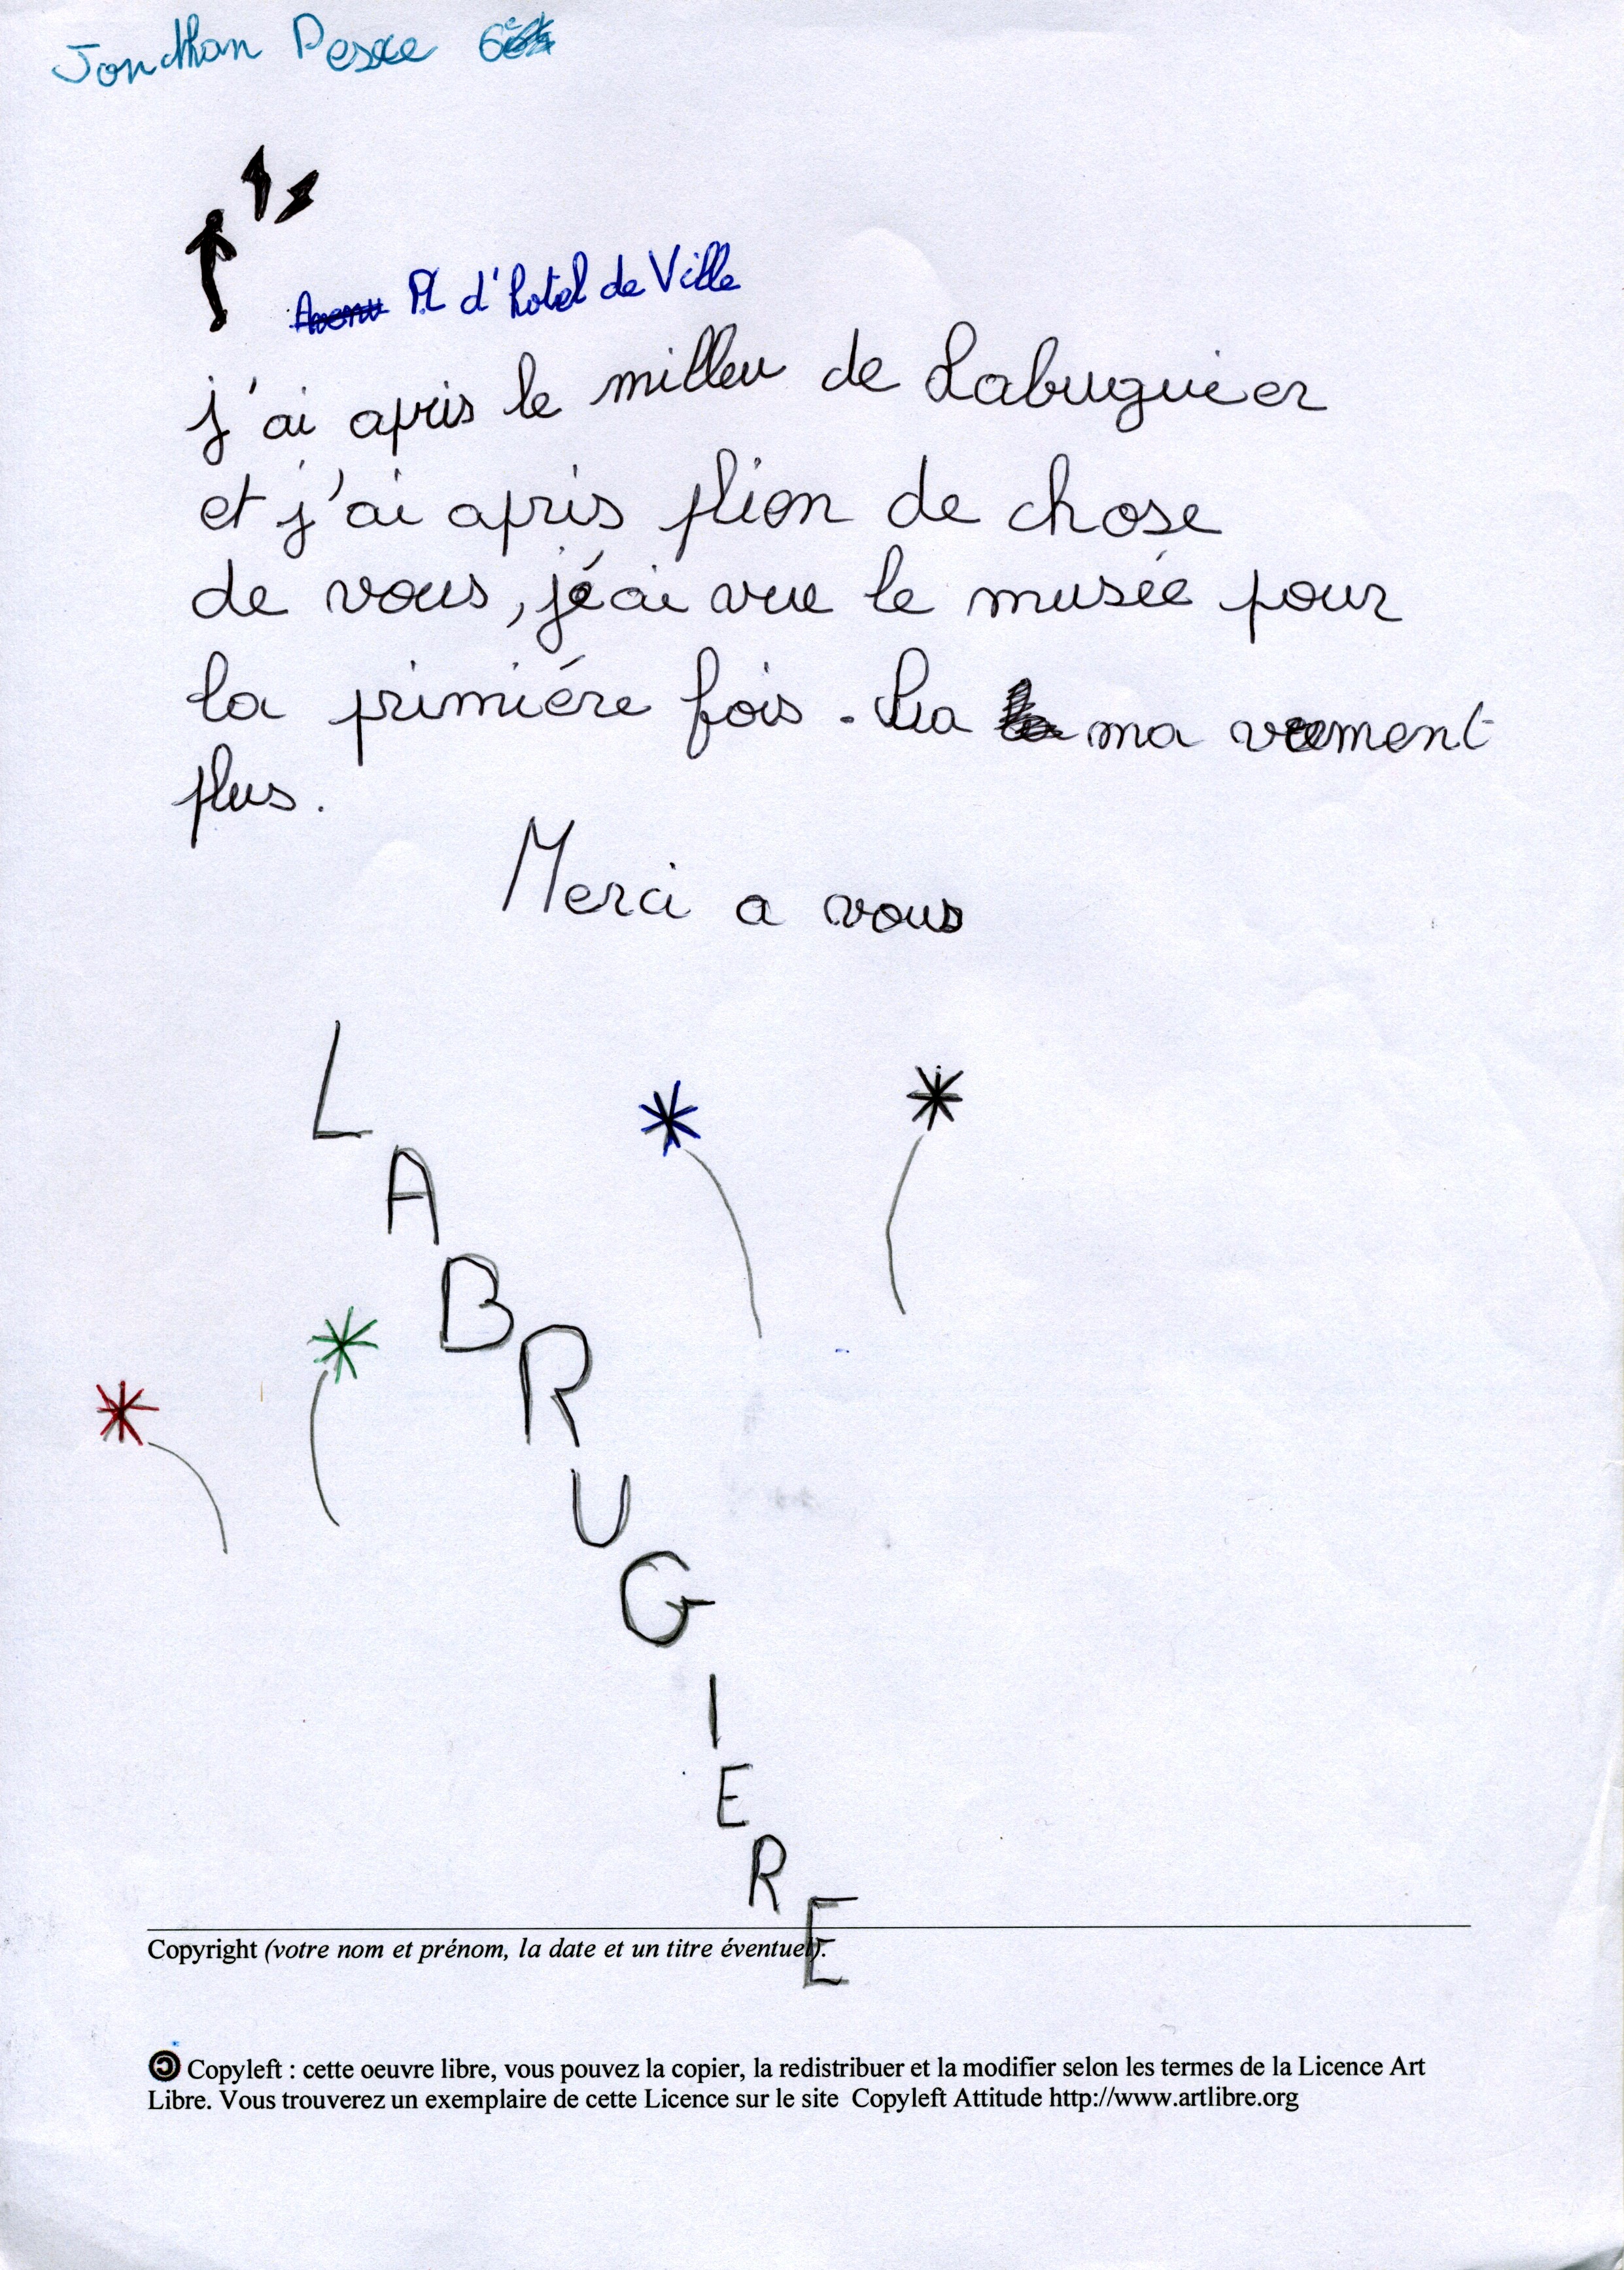 Jonathan Pesce 6e
Pl d'hotel de Ville
j'ai apris le milleu de Labuguier
et j'ai apris plion de chose
de vous, j'ai vue le musée pour
la primiére fois. Sa ma vrement
plus.
Merci a vous
LABRUGIERE
Copyright (votre nom et prénom, la date et un titre éventuel).
Copyleft : cette oeuvre libre, vous pouvez la copier, la redistribuer et la modifier selon les termes de la Licence Art
Libre. Vous trouverez un exemplaire de cette Licence sur le site Copyleft Attitude http://www.artlibre.org